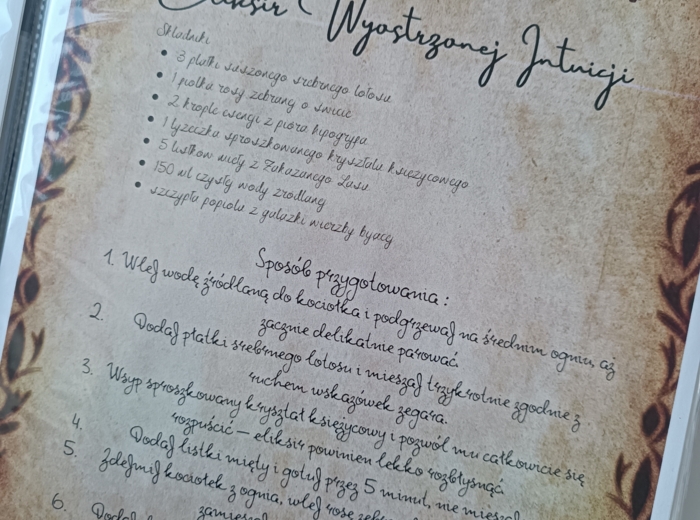 Eliksir Wyostrzonej Intuicji
Składniki
• 3 płatki suszonego srebrnego lotosu
• 1 fiolka rosy zebranej o świcie
• 2 krople esencji z pióra hipogryfa
• 1 łyżeczka sproszkowanego kryształu księżycowego
• 5 listków mięty z Zakazanego Lasu
• 150 ml czystej wody źródlanej
• szczypta popiołu z gałązki wierzby bijącej
Sposób przygotowania:
1. Wlej wodę źródlaną do kociołka i podgrzewaj na średnim ogniu, aż
zacznie delikatnie parować.
2. Dodaj płatki srebrnego lotosu i mieszaj trzykrotnie zgodnie z
ruchem wskazówek zegara.
3. Wsyp sproszkowany kryształ księżycowy i pozwól mu całkowicie się
rozpuścić – eliksir powinien lekko rozbłysnąć.
4. Dodaj listki mięty i gotuj przez 5 minut, nie
5. Zdejmij kociołek z ognia, wlej rosę
6. Dodaj